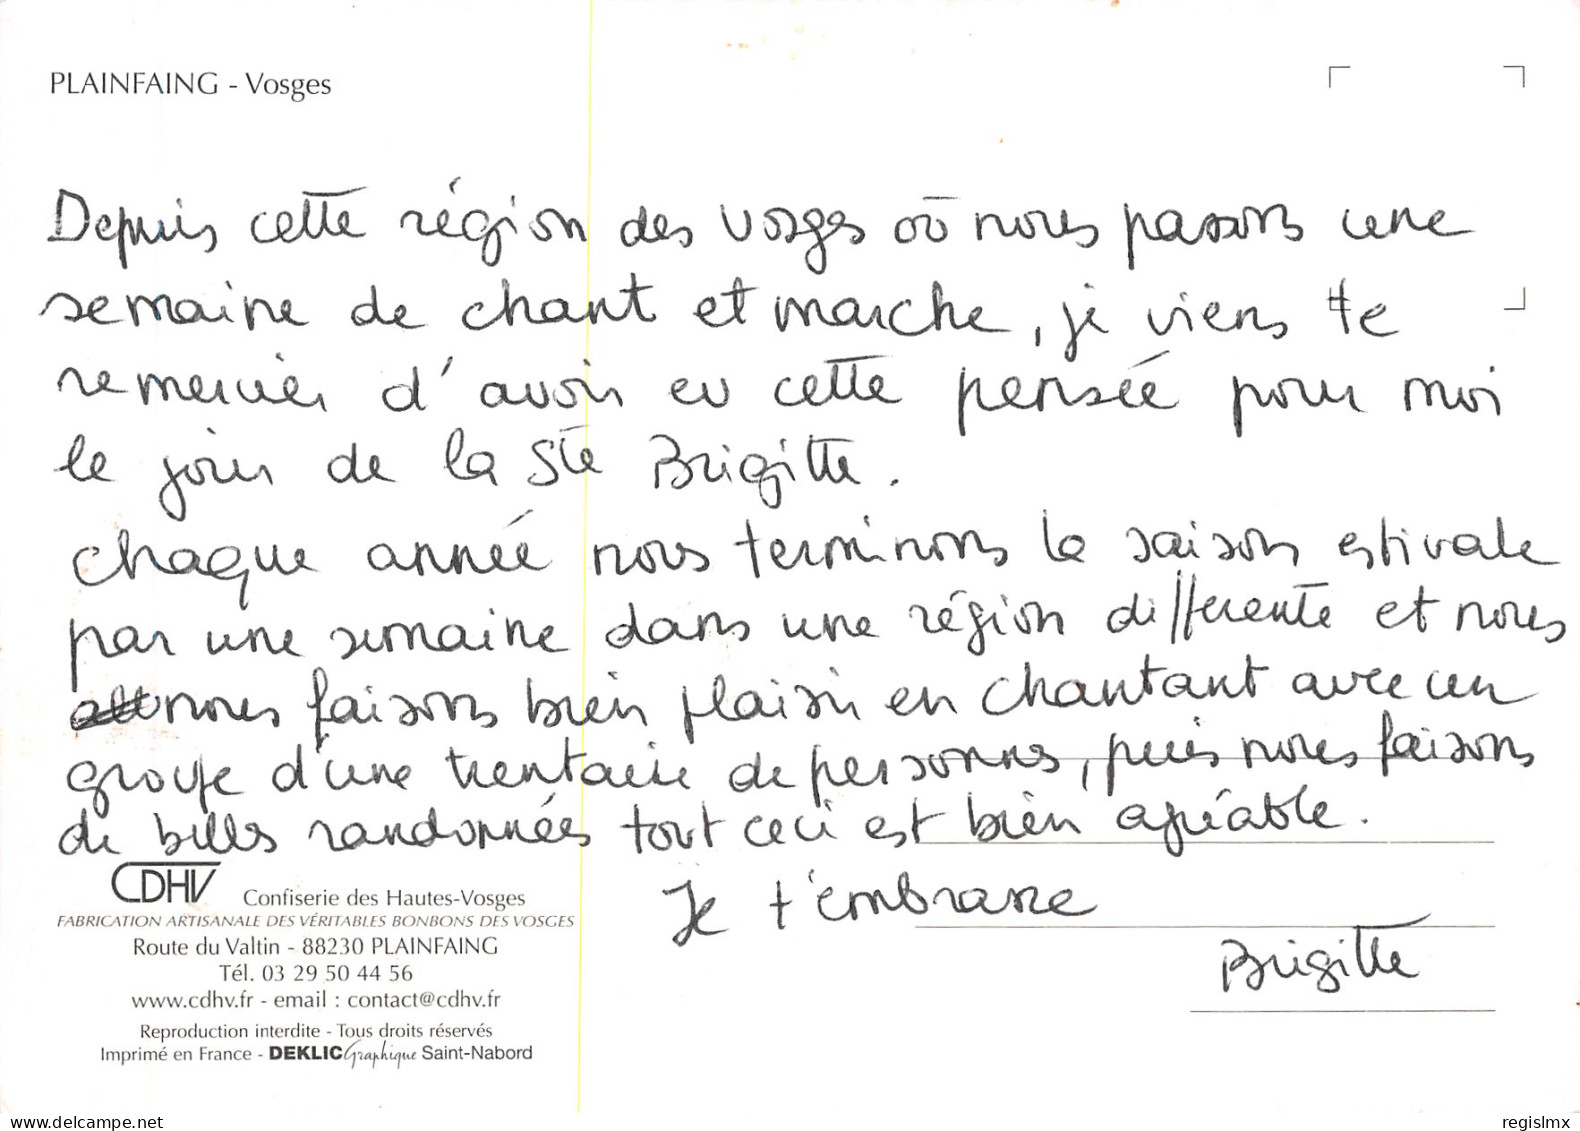 PLAINFAING - Vosges
Depuis cette région des vosges où nous passons une
semaine de chant et marche, je viens te
remercier d'avoir eu cette pensée pour moi
le jour de la Ste Brigitte.
Chaque année nous terminons la saison estivale
par une semaine dans une région différente et nous
nous faisons bien plaisir en chantant avec un
groupe d'une trentaine de personnes, puis nous faisons
de belles randonnées tout ceci est bien agréable.
Je t'embrasse
Brigitte
CDHV Confiserie des Hautes-Vosges
FABRICATION ARTISANALE DES VÉRITABLES BONBONS DES VOSGES
Route du Valtin - 88230 PLAINFAING
Tél. 03 29 50 44 56
www.cdhv.fr - email : contact@cdhv.fr
Reproduction interdite - Tous droits réservés
Imprimé en France - DEKLIC Graphique Saint-Nabord
delcampe.net
regislmx